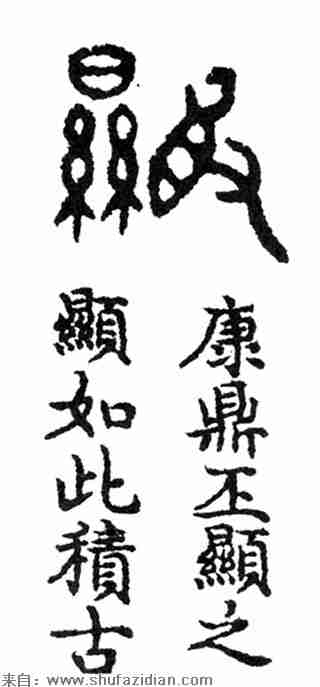 顯
康鼎丕顯之
顯如此積古
来自：www.shufazidian.com